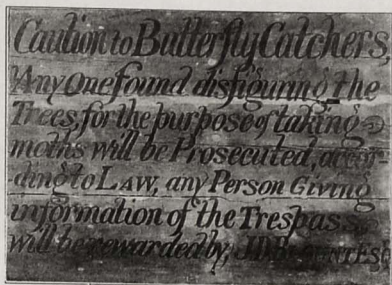 Caution to Butterfly Catchers,
Any One found disfiguring the
Trees, for the purpose of taking
moths will be Prosecuted, accor
ding to LAW, any Person Giving
information of the Trespass
will be rewarded by,